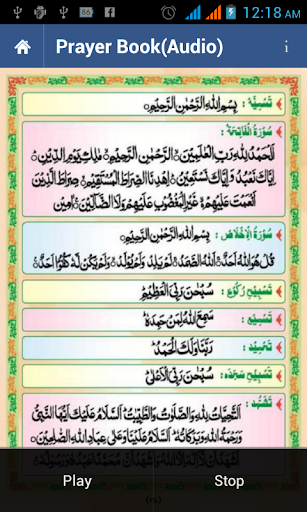 12:18 AM
Prayer Book(Audio)
تسمیہ: بِسْمِ اللّٰهِ الرَّحْمٰنِ الرَّحِيْمِ
سُوْرَةُ الْفَاتِحَةِ:
اَلْحَمْدُ لِلّٰهِ رَبِّ الْعٰلَمِيْنَ الرَّحْمٰنِ الرَّحِيْمِ مٰلِكِ يَوْمِ الدِّيْنِ
اِيَّاكَ نَعْبُدُ وَ اِيَّاكَ نَسْتَعِيْنُ اِهْدِنَا الصِّرَاطَ الْمُسْتَقِيْمَ صِرَاطَ الَّذِيْنَ
اَنْعَمْتَ عَلَيْهِمْ غَيْرِ الْمَغْضُوْبِ عَلَيْهِمْ وَلَا الضَّآلِّيْنَ اٰمِيْن
سُوْرَةُ الْاِخْلَاصِ: بِسْمِ اللّٰهِ الرَّحْمٰنِ الرَّحِيْمِ
قُلْ هُوَ اللّٰهُ اَحَدٌ اَللّٰهُ الصَّمَدُ لَمْ يَلِدْ وَلَمْ يُوْلَدْ وَلَمْ يَكُنْ لَّهٗ كُفُوًا اَحَدٌ
تسبیح رکوع: سُبْحٰنَ رَبِّيَ الْعَظِيْمِ
تسمیع: سَمِعَ اللّٰهُ لِمَنْ حَمِدَهٗ
تحمید: رَبَّنَا وَلَكَ الْحَمْدُ
تسبیح سجدہ: سُبْحٰنَ رَبِّيَ الْاَعْلٰى
تشہد:
اَلتَّحِيَّاتُ لِلّٰهِ وَالصَّلَوٰتُ وَالطَّيِّبٰتُ اَلسَّلَامُ عَلَيْكَ اَيُّهَا النَّبِيُّ
وَرَحْمَةُ اللّٰهِ وَبَرَكَاتُهٗ اَلسَّلَامُ عَلَيْنَا وَعَلٰى عِبَادِ اللّٰهِ الصّٰلِحِيْنَ
Play
Stop